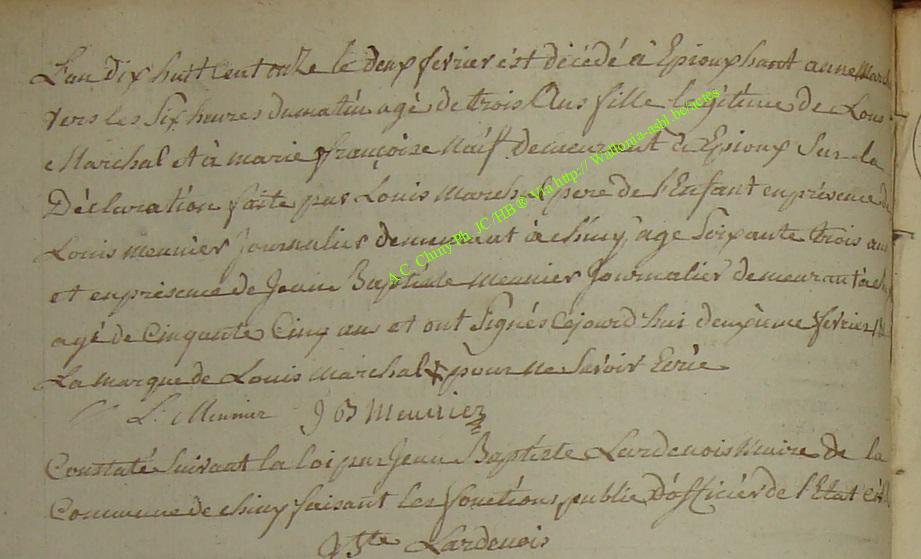 L'an dix huit cent onze le deux fevrier est décédé à Epioux hant anne March
vers les Six heures du matin agé de trois Ans fille legitime de Louis
Marchal et à marie françoise Naif Demeurant à Epioux Sur la
Déclaration faite par Louis March pere de l'Enfant en présence de
Louis meunier Journalier demeurant à chiny, age Soixante trois ans
et en présence de Jean Baptiste Meunier Journalier demeurant à chiny
agé de Cinquante Cinq an et ont Signés cejourd'hui deuxième fevrier
La marque de Louis Marchal + pour ne Savoir Ecrie
L. Meunier J B Meunier
Constaté Suivant la loi par Jean Baptiste Lardenois Maire de la
Commune de chiny faisant les fonctions public D'officier de l'Etat civil
J Bte Lardenois
A.C. Chiny Ph. JC/HB ® Via http:// Wallonia-asbl.be/actes